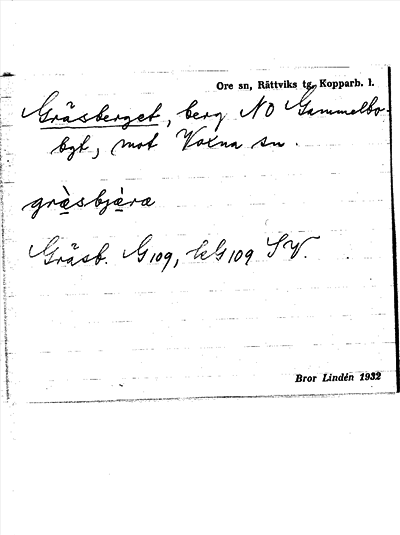 Ore sn, Rättviks tg, Kopparb. l.
Gräsberget, berg NO Gammelbo-
bgt, mot Voxna sn.
grä̀sbjä̀ra
Gräsb. G109, kG109 SV.
Bror Lindén 1932